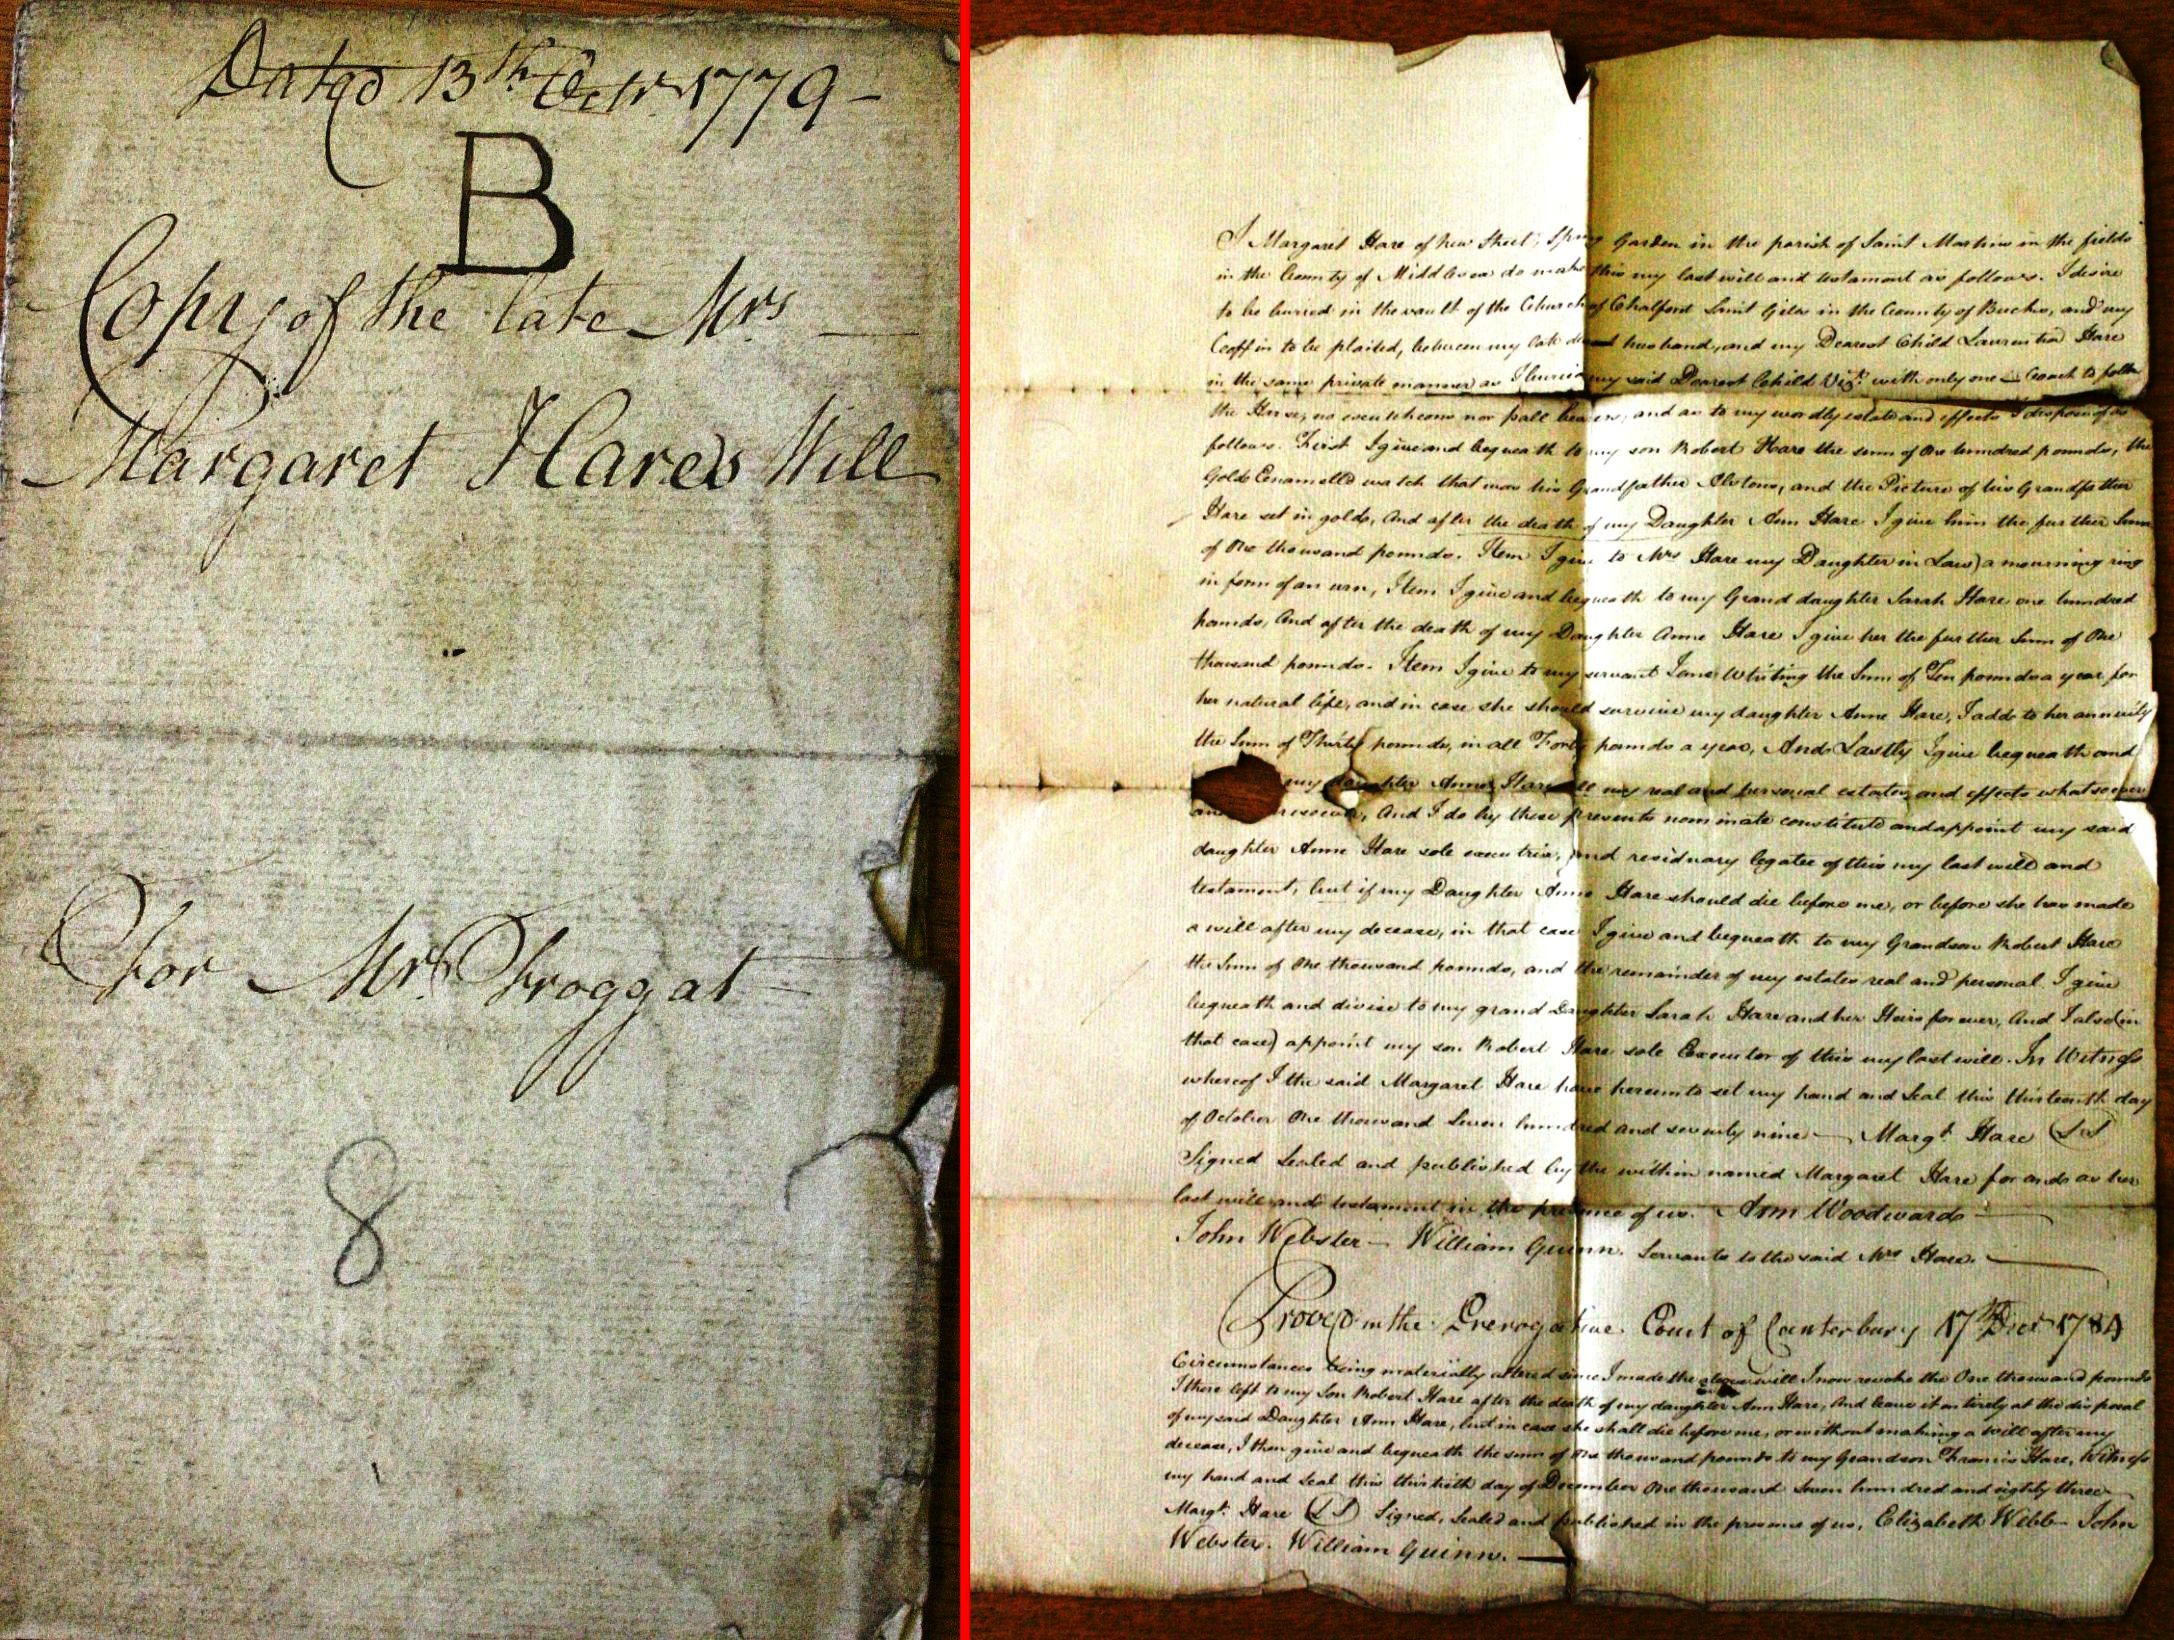 Dated 13th Octr. 1779 -
B
Copy of the late Mrs
Margaret Hare's Will
For Mr. Froggat
8
I Margaret Hare of New Street, Spring Garden in the parish of Saint Martins in the fields
in the County of Middlesex do make this my last will and testament as follows. I desire
to be buried in the vault of the Church of Chalfont Saint Giles in the County of Bucks, and my
Coffin to be plaited, between my late dearest husband, and my Dearest Child Laurentia Hare
in the same private manner as I buried my said Dearest Child Vizt. with only one Coach to follow
the Herse, no escutcheons nor pall bearers, and as to my wordly estate and effects I dispose of as
follows. First I give and bequeath to my son Robert Hare the sum of One hundred pounds, the
Gold Enamelld watch that was his Grandfather Alstons, and the Picture of his Grandfather
Hare set in gold, And after the death of my Daughter Ann Hare I give him the further Sum
of One thousand pounds. Item I give to Mrs Hare my Daughter in Law a mourning ring
in form of an urn, Item I give and bequeath to my Grand daughter Sarah Hare one hundred
pounds, And after the death of my Daughter Anne Hare I give her the further Sum of One
thousand pounds. Item I give to my servant Jane Whiting the Sum of Ten pounds a year for
her natural life, and in case she should survive my daughter Anne Hare, I add to her annuity
the Sum of Thirty pounds, in all Forty pounds a year, And Lastly I give bequeath and
my daughter Anne Hare all my real and personal estates, and effects whatsoever
and And I do by these presents nominate constitute and appoint my said
daughter Anne Hare sole executrix, and residuary legatee of this my last will and
testament, but if my Daughter Anne Hare should die before me, or before she has made
a will after my decease, in that case I give and bequeath to my Grandson Robert Hare
the Sum of One thousand pounds, and the remainder of my estates real and personal I give
bequeath and divise to my grand Daughter Sarah Hare and her Heirs for ever, And I also (in
that case) appoint my son Robert Hare sole Executor of this my last will. In Witness
whereof I the said Margaret Hare have hereunto set my hand and Seal this thirteenth day
of October One thousand Seven hundred and seventy nine — Margt. Hare (LS)
Signed Sealed and published by the within named Margaret Hare for and as her
last will and testament in the presence of us. Ann Woodward
John Webster — William Quinn. Servants to the said Mrs Hare.
Proved in the Prerogative Court of Canterbury 17th Decr 1784
Circumstances being materially altered since I made the above will I now revoke the One thousand pounds
I there left to my Son Robert Hare after the death of my daughter Ann Hare, And leave it entirely at the disposal
of my said Daughter Ann Hare, but in case she shall die before me, or without making a Will after my
decease, I then give and bequeath the sum of One thousand pounds to my Grandson Francis Hare, Witness
my hand and Seal this thirtieth day of December One thousand Seven hundred and eighty three
Margt. Hare (LS) Signed, Sealed and published in the presence of us, Elizabeth Webb - John
Webster. William Quinn.